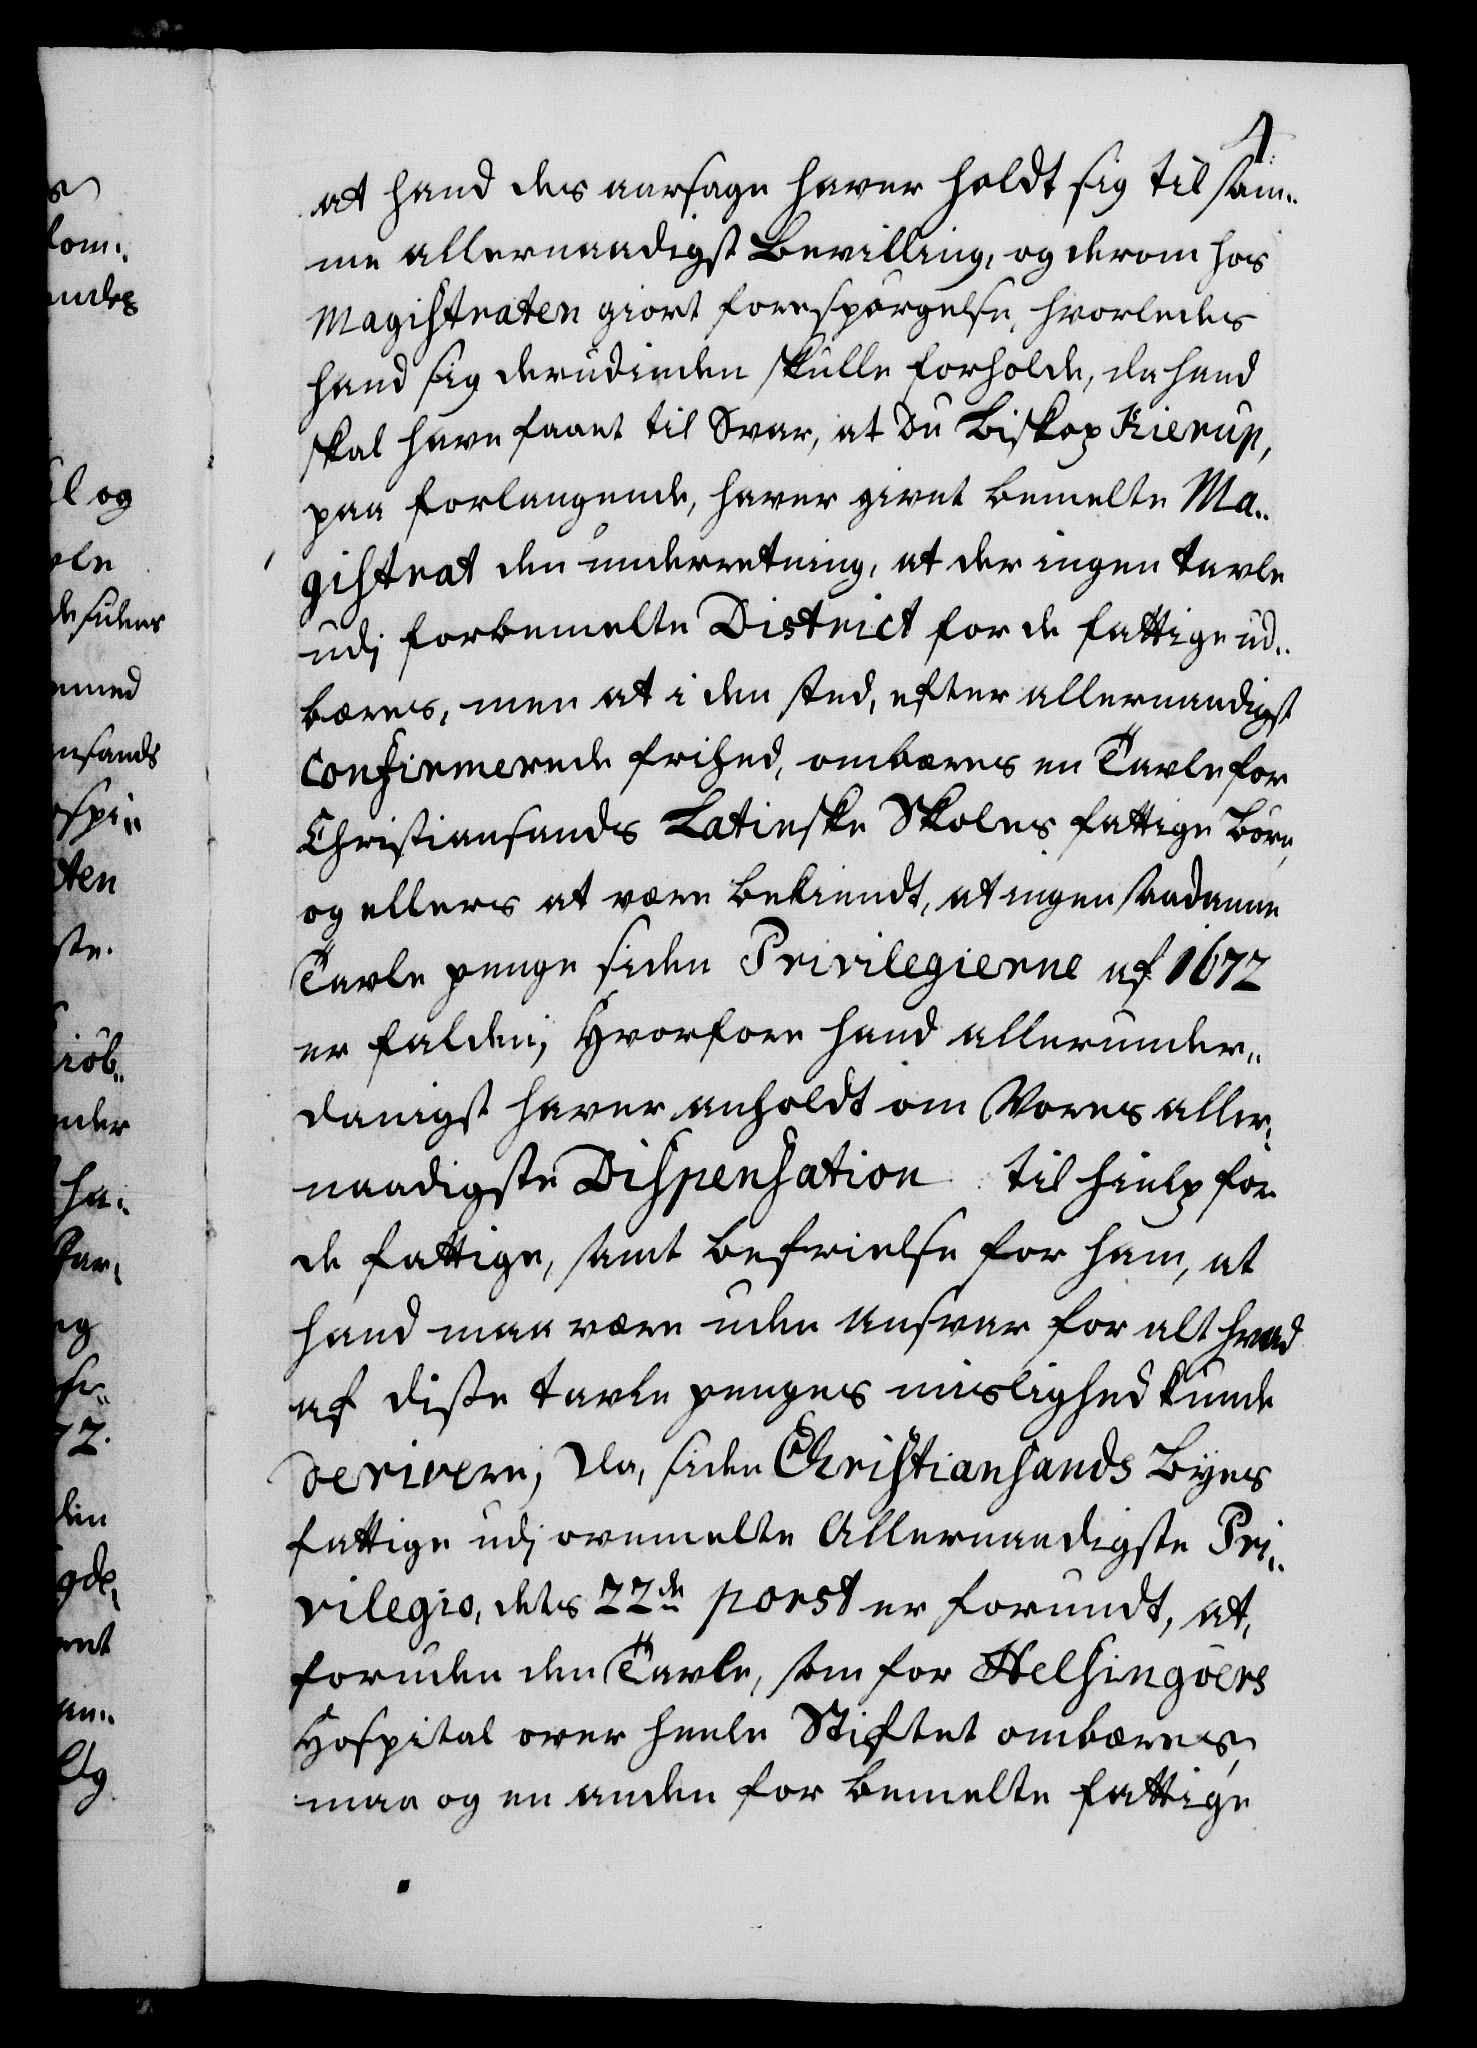 4.
at hand des aarsage haver holdt sig til sam-
me allernaadigst Bevilling, og derom hos
Magistraten giort forespørgelse, hvorledes
hand sig derudinden skulle forholde, da hand
skal have faaet til Svar, at Du Biskop Kierup,
paa forlangende, haver givet bemelte Ma-
gistrat den underretning, at der ingen tavle
udj forbemelte District for de fattige ud-
bæres, men at i den sted, efter allernaadigst
confirmerede frihed, ombæres en Tavle for
Christiansands Latinske Skoles fattige Børn,
og ellers at være bekiendt, at ingen saadanne
Tavle penge siden Privilegierne af 1672
er falden; Hvorfore hand allerunder-
danigst haver anholdt om Vores aller-
naadigste Dispensation til hielp for
de fattige, samt befrielse for ham, at
hand maa være uden ansvar for alt hvad
af disse tavle penges mislighed kunde
derivere; Da, siden Christiansands Byes
fattige udj ovenmelte Allernaadigste Pri-
vilegio, dets 22de post er forundt, at,
foruden den Tavle, som for Helsingøers
Hospital over heele Stiftet ombæres,
maa og en anden for bemelte fattige